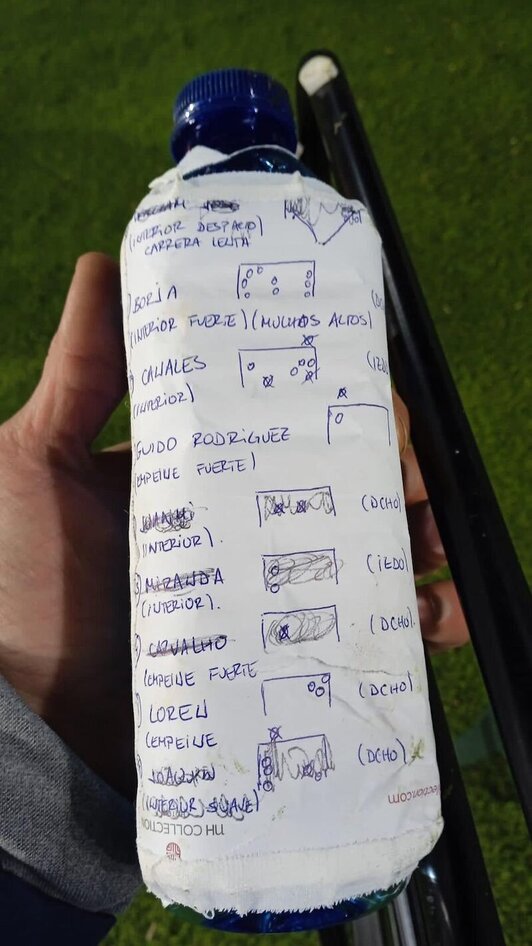 (INTERIOR DESPACIO
CARRERA LENTA
BORJA
(INTERIOR FUERTE) (MUCHOS ALTOS)
CANALES
(INTERIOR)
GUIDO RODRIGUEZ
(EMPEINE FUERTE)
JUANMI (DCHO)
(INTERIOR).
MIRANDA (IZDO)
(INTERIOR).
CARVALHO (DCHO).
(EMPEINE FUERTE
LOREN (DCHO)
(EMPEINE
JOAQUIN (DCHO)
(INTERIOR SUAVE)
nH COLLECTION
ection.com